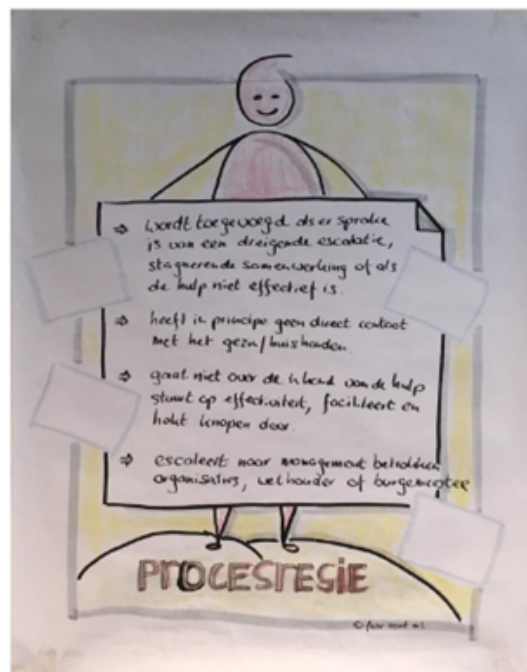 ⇒ wordt toegevoegd als er sprake
is van een dreigende escalatie,
stagnerende samenwerking of als
de hulp niet effectief is.
⇒ heeft in principe geen direct contact
met het gezin/huishouden.
⇒ gaat niet over de inhoud van de hulp
stuurt op effectiviteit, faciliteert en
hakt knopen door.
⇒ escaleert naar management betrokken
organisaties, wethouder of burgemeester
PROCESREGIE
©